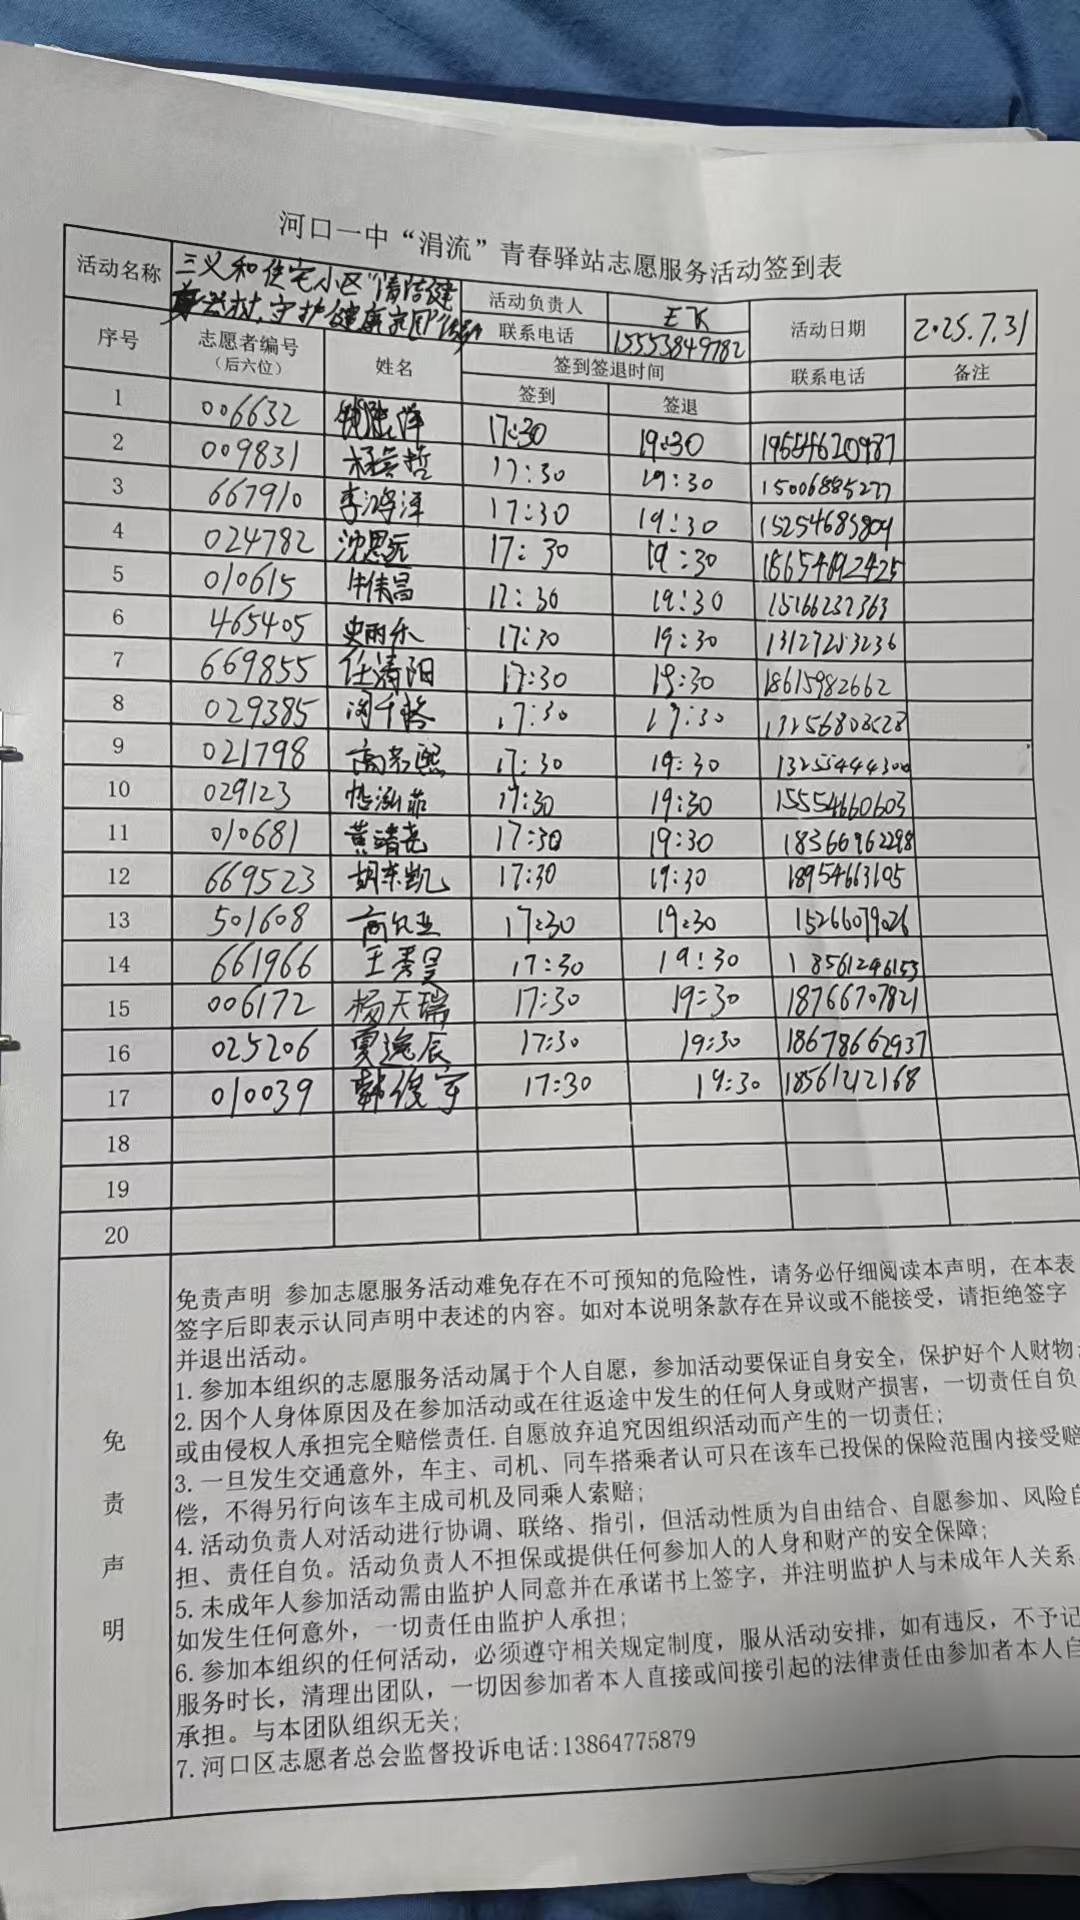 河口一中“涓流”青春驿站志愿服务活动签到表
活动名称 三义和住宅小区“清洁健身器材,守护健康家园”活动
活动负责人 王
联系电话 15553849782
活动日期 2025.7.31
序号 志愿者编号(后六位) 姓名 签到签退时间 联系电话 备注
签到 签退
1 006632 17:30 19:30 19554620987
2 009831 杨云哲 17:30 19:30 15006885277
3 667910 李鸿泽 17:30 19:30 15254685809
4 024782 沈思远 17:30 19:30 18654692425
5 010615 牛伟昌 17:30 19:30 15166232363
6 465405 史雨乐 17:30 19:30 13127253236
7 669855 任清阳 17:30 19:30 18615982662
8 029385 17:30 17:30 13256808528
9 021798 17:30 19:30 13255444300
10 029123 17:30 19:30 15554660603
11 010681 黄靖尧 17:30 19:30 18366962298
12 669523 胡东凯 17:30 19:30 18954663105
13 501608 17:30 19:30 15266079026
14 661966 17:30 19:30 18561296153
15 006172 杨天瑞 17:30 19:30 18766707821
16 025206 夏逸辰 17:30 19:30 18678662937
17 010039 韩俊宇 17:30 19:30 18561212168
18
19
20
免责声明
免责声明 参加志愿服务活动难免存在不可预知的危险性，请务必仔细阅读本声明，在本表
签字后即表示认同声明中表述的内容。如对本说明条款存在异议或不能接受，请拒绝签字
并退出活动。
1.参加本组织的志愿服务活动属于个人自愿，参加活动要保证自身安全，保护好个人财物;
2.因个人身体原因及在参加活动或在往返途中发生的任何人身或财产损害，一切责任自负
或由侵权人承担完全赔偿责任.自愿放弃追究因组织活动而产生的一切责任;
3.一旦发生交通意外，车主、司机、同车搭乘者认可只在该车已投保的保险范围内接受赔
偿，不得另行向该车主成司机及同乘人索赔;
4.活动负责人对活动进行协调、联络、指引，但活动性质为自由结合、自愿参加、风险自
担、责任自负。活动负责人不担保或提供任何参加人的人身和财产的安全保障;
5.未成年人参加活动需由监护人同意并在承诺书上签字，并注明监护人与未成年人关系
如发生任何意外，一切责任由监护人承担;
6.参加本组织的任何活动，必须遵守相关规定制度，服从活动安排，如有违反，不予记
服务时长，清理出团队，一切因参加者本人直接或间接引起的法律责任由参加者本人自
承担。与本团队组织无关;
7.河口区志愿者总会监督投诉电话:13864775879